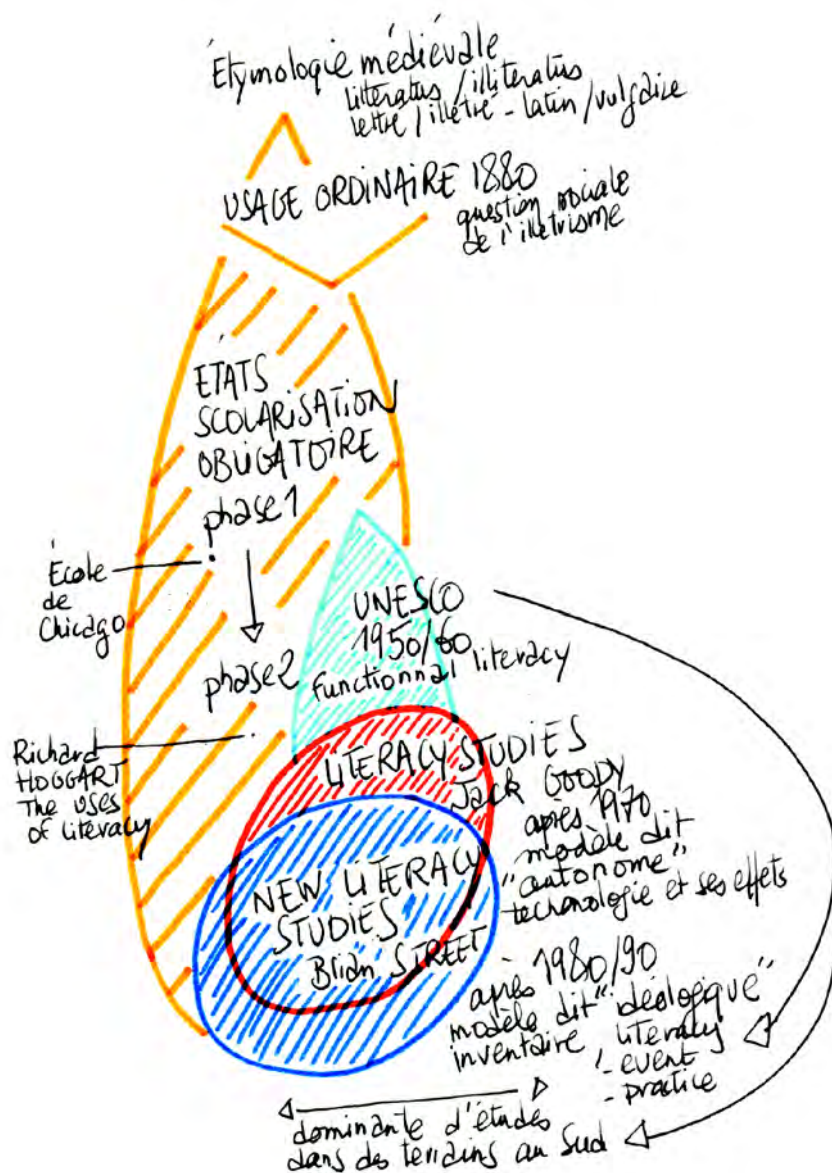 Étymologie médiévale
litteratus / illiteratus
lettré / illétré - latin / vulgaire
USAGE ORDINAIRE 1880
question sociale
de l'illetrisme
ÉTATS
SCOLARISATION
OBLIGATOIRE
phase 1
École
de
Chicago
phase 2
UNESCO
1950/60
functionnal literacy
Richard
HOGGART
The uses
of literacy
LITERACY STUDIES
Jack GOODY
après 1970
modèle dit
"autonome"
technologie et ses effets
NEW LITERACY
STUDIES
Brian STREET
après 1980/90
modèle dit "idéologique"
inventaire literacy
- event
- practice
dominante d'études
dans des terrains au Sud